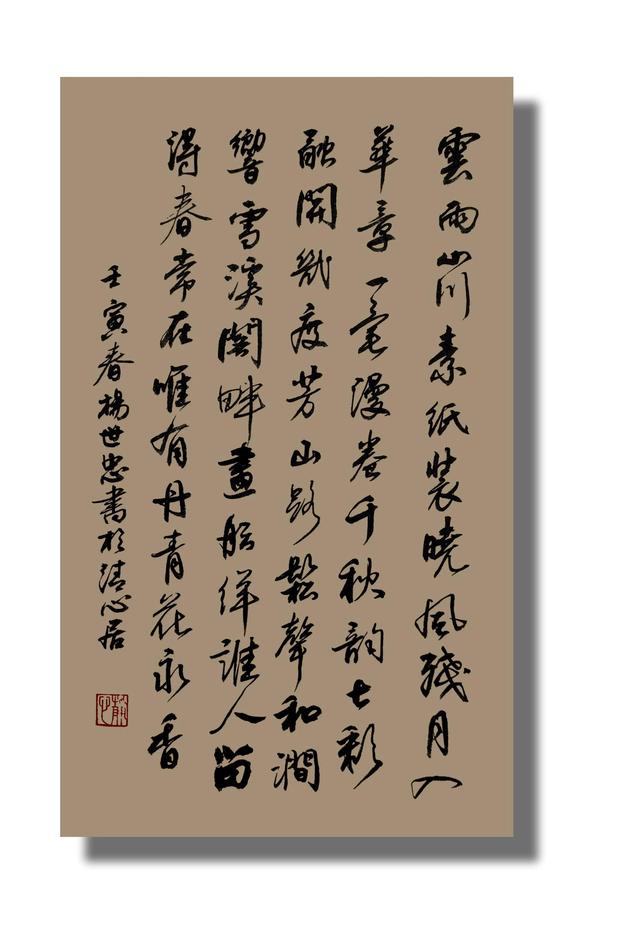 雲雨山川素紙裝曉風殘月入
華章一毫漫卷千秋韻七彩
融開幾度芳山路鬆聲和澗
響雪溪閣畔畫船徉誰人留
得春常在唯有丹青花永香
壬寅春楊世忠書於清心居